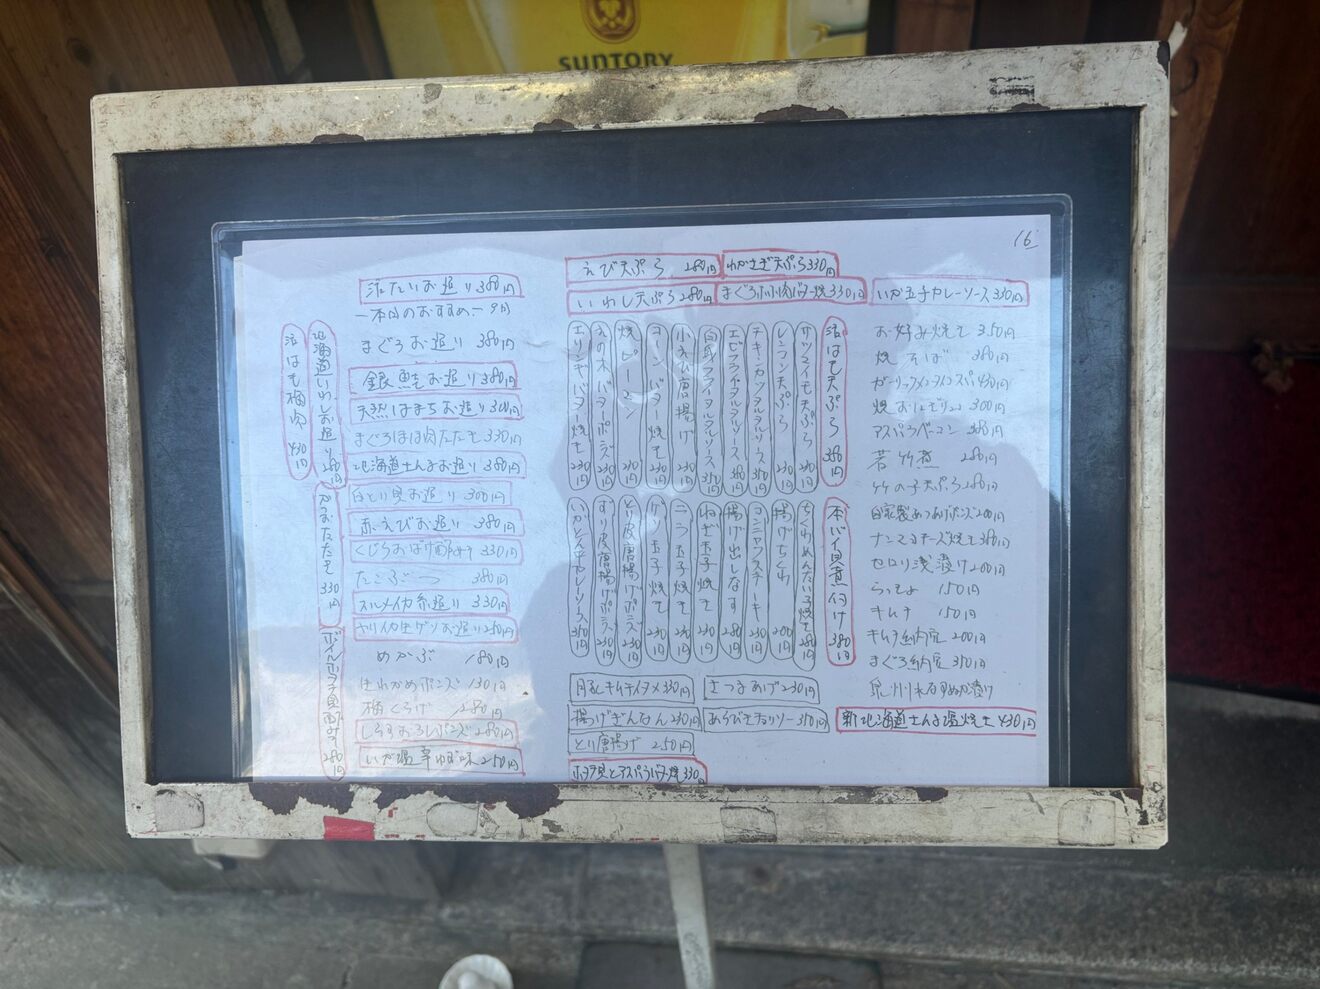 SUNTORY
16
えび天ぷら 280円
わかさぎ天ぷら330円
いわし天ぷら280円
まぐろホホ肉バター焼330円
いか玉子カレーソース350円
活たいお造り380円
ー本日のおすすめー
まぐろお造り 380円
銀鮭お造り380円
天然はまちお造り300円
まぐろほほ肉たたき330円
北海道さんまお造り380円
白とり貝お造り300円
赤えびお造り 380円
くじらおばけ酢みそ330円
たこぶつ 380円
スルメイカ糸造り330円
ヤリイカ生ゲソお造り250円
めかぶ 180円
生わかめポンズ130円
梅くらげ 280円
しらすおろしポンズ280円
いか塩辛ゆず味250円
北海道いわしお造り280円
活はも梅肉430円
かつおたたき330円
活はも天ぷら380円
サツマイモ天ぷら230円
レンコン天ぷら230円
チキンカツタルタルソース350円
エビフライタルタルソース380円
白身フライタルタルソース350円
小えび唐揚げ230円
コーンバター焼き230円
焼ピーマン230円
えのきバターポンズ230円
エリンギバター焼き230円
本バイ貝煮付け380円
ちくわめんたい子焼き280円
揚げちくわ200円
コンニャクステーキ230円
揚げ出しなす280円
ねぎ玉子焼き230円
ニラ玉子焼き230円
とり皮唐揚げポンズ230円
いか玉子カレーソース350円
お好み焼き 350円
焼そば 380円
ガーリックメンタイコスパ430円
焼おにぎり 300円
アスパラベーコン 380円
若竹煮 280円
竹の子天ぷら280円
自家製あつあげポンズ200円
セロリ浅漬け200円
らっきょ 150円
キムチ 150円
キムチ納豆 200円
まぐろ納豆 350円
泉州水なすぬか漬け
新北海道さんま塩焼き430円
豚キムチイタメ330円
さつまあげ230円
揚げぎんなん230円
あらびきチョリソー350円
とり唐揚げ 250円
ホタテ貝とアスパラバター焼330円